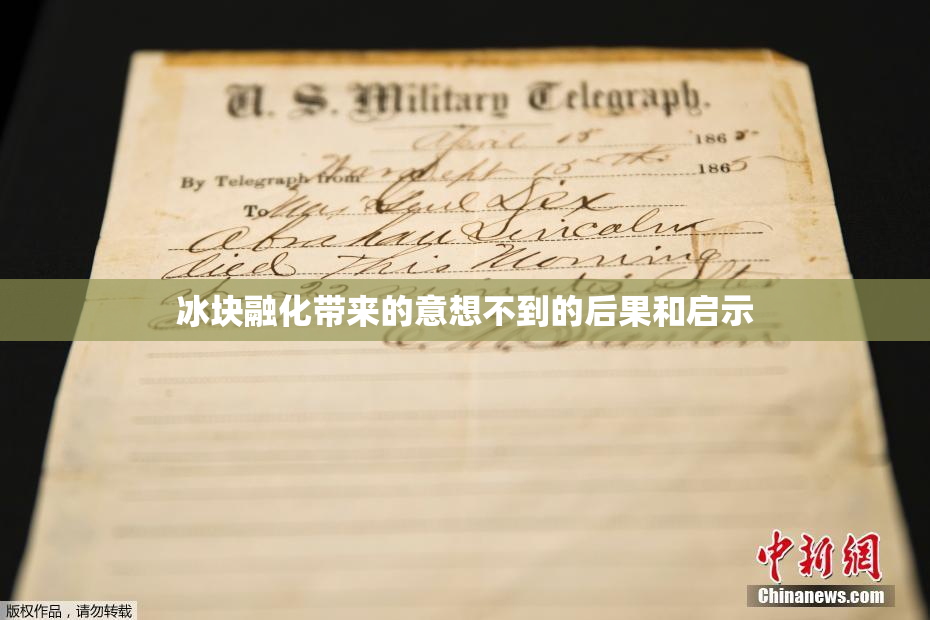 U. S. Military Telegraph.
April 15 1865
By Telegraph from War Dept 15th 1865
To Maj Genl Dix
Abraham Lincoln
died This Morning
at 22 minutes after
冰块融化带来的意想不到的后果和启示
E. M. Stanton
中新網
Chinanews.com
版权作品，请勿转载